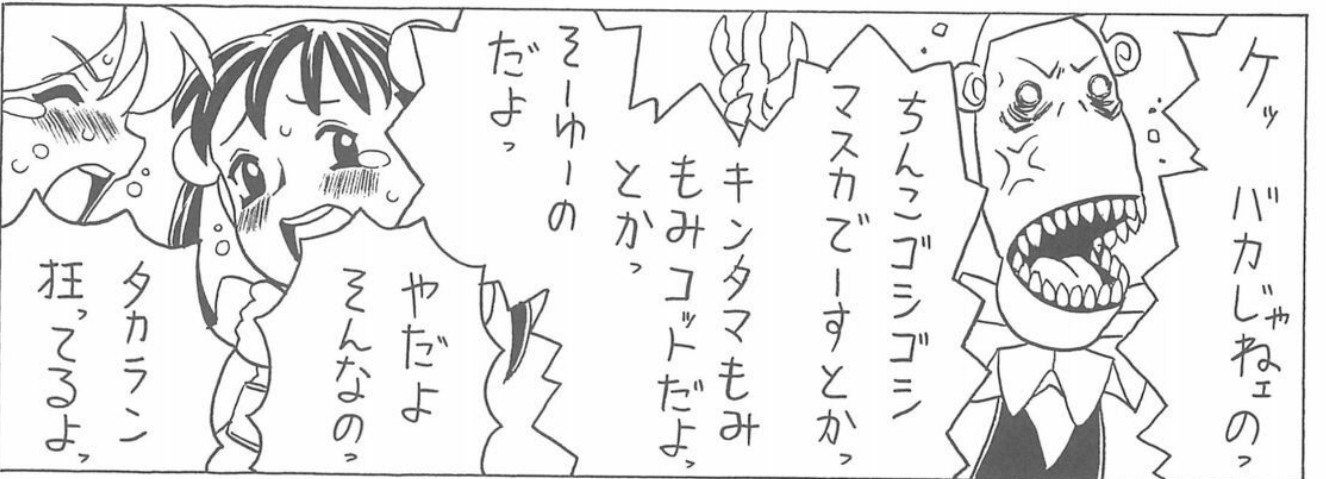 ケッ バカじゃねェのっ
ちんこゴシゴシ
マスカでーすとかっ
キンタマもみ
もみコットだよっ
とかっ
そーゆーの
だよっ
やだよ
そんなのっ
タカラン
狂ってるよっ